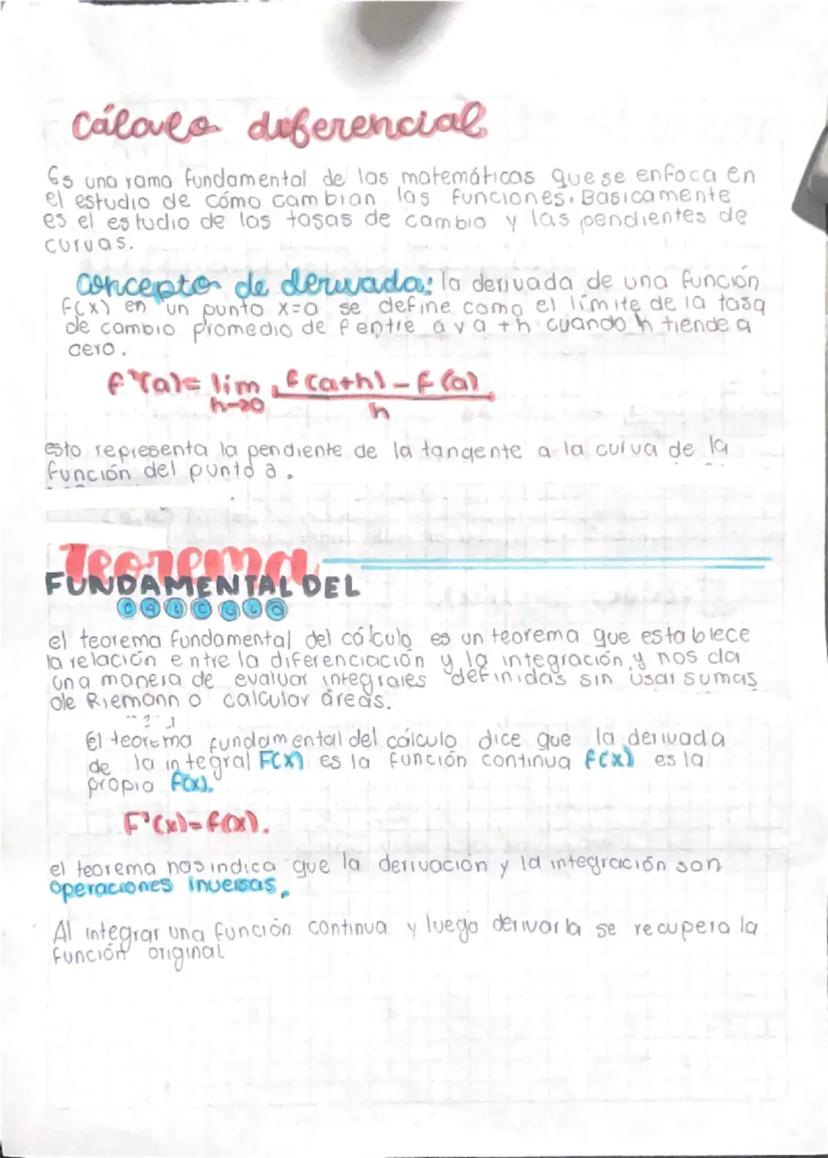 Cálculo diferencial
Es una rama fundamental de las matemáticas que se enfoca en
el estudio de cómo cambian las funciones. Basicamente
es el estudio de las tasas de cambio y las pendientes de
curvas.
Concepto de derivada: la derivada de una función
f(x) en un punto x=a se define como el límite de la tasa
de cambio promedio de f entre a y a+h cuando h tiende a
cero.
f'(a)= lim f(a+h)-f(a)
h→0 h
esto representa la pendiente de la tangente a la curva de la
función del punto a.
Teorema
FUNDAMENTAL DEL
CALCULO
el teorema fundamental del cálculo es un teorema que establece
la relación entre la diferenciación y la integración y nos da
una manera de evaluar integrales definidas sin usar sumas
de Riemann o calcular áreas.
El teorema fundamental del cálculo dice que la derivada
de la integral F(x) es la función continua f(x) es la
propia f(x).
F'(x)=f(x).
el teorema nos indica que la derivación y la integración son
operaciones inversas.
Al integrar una función continua y luego derivarla se recupera la
función original